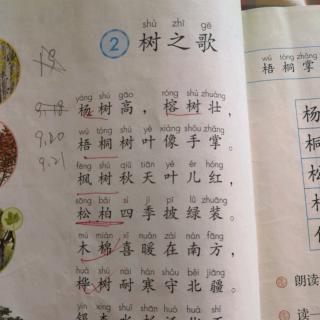 shù zhī gē
② 树之歌
yáng shù gāo róng shù zhuàng
杨树高，榕树壮，
wú tóng shù yè xiàng shǒu zhǎng
梧桐树叶像手掌。
fēng shù qiū tiān yè ér hóng
枫树秋天叶儿红，
sōng bǎi sì jì pī lǜ zhuāng
松柏四季披绿装。
mù mián xǐ nuǎn zài nán fāng
木棉喜暖在南方，
huà shù nài hán shǒu běi jiāng
桦树耐寒守北疆。
yín xìng shuǐ shān
银杏水杉
9.18
9.20
9.21
wú tóng zhǎng
梧桐掌
杨
桐
松
桦
朗读
读一